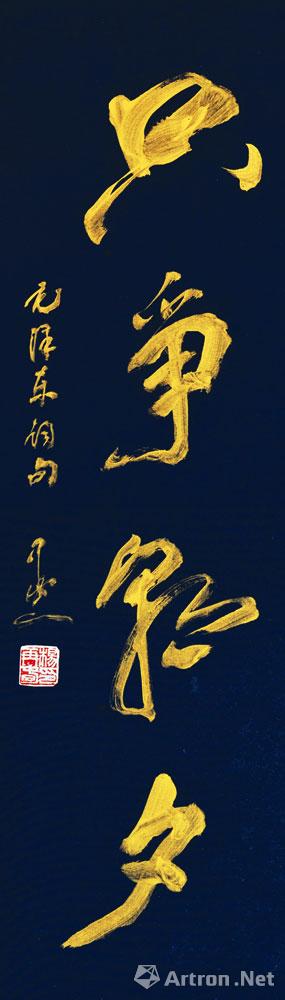 只争朝夕
毛泽东词句
杨再春
Artron.Net